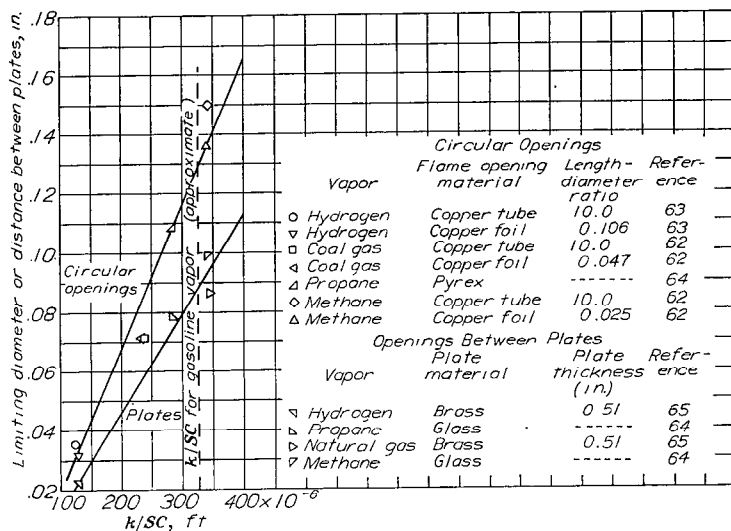 Limiting diameter or distance between plates, in.
.18
.16
.14
.12
.10
.08
.06
.04
.02
100
200
300
400×10⁻⁶
k/SC, ft
k/SC for gasoline vapor (approximate)
Circular openings
Plates
Circular Openings
Vapor Flame opening material Length-diameter ratio Refer-ence
Hydrogen Copper tube 10.0 63
Hydrogen Copper foil 0.106 63
Coal gas Copper tube 10.0 62
Coal gas Copper foil 0.047 62
Propane Pyrex ------ 64
Methane Copper tube 10.0 62
Methane Copper foil 0.025 62
Openings Between Plates
Vapor Plate material Plate thickness (in.) Refer-ence
Hydrogen Brass 0.51 65
Propane Glass ----- 64
Natural gas Brass 0.51 65
Methane Glass ----- 64